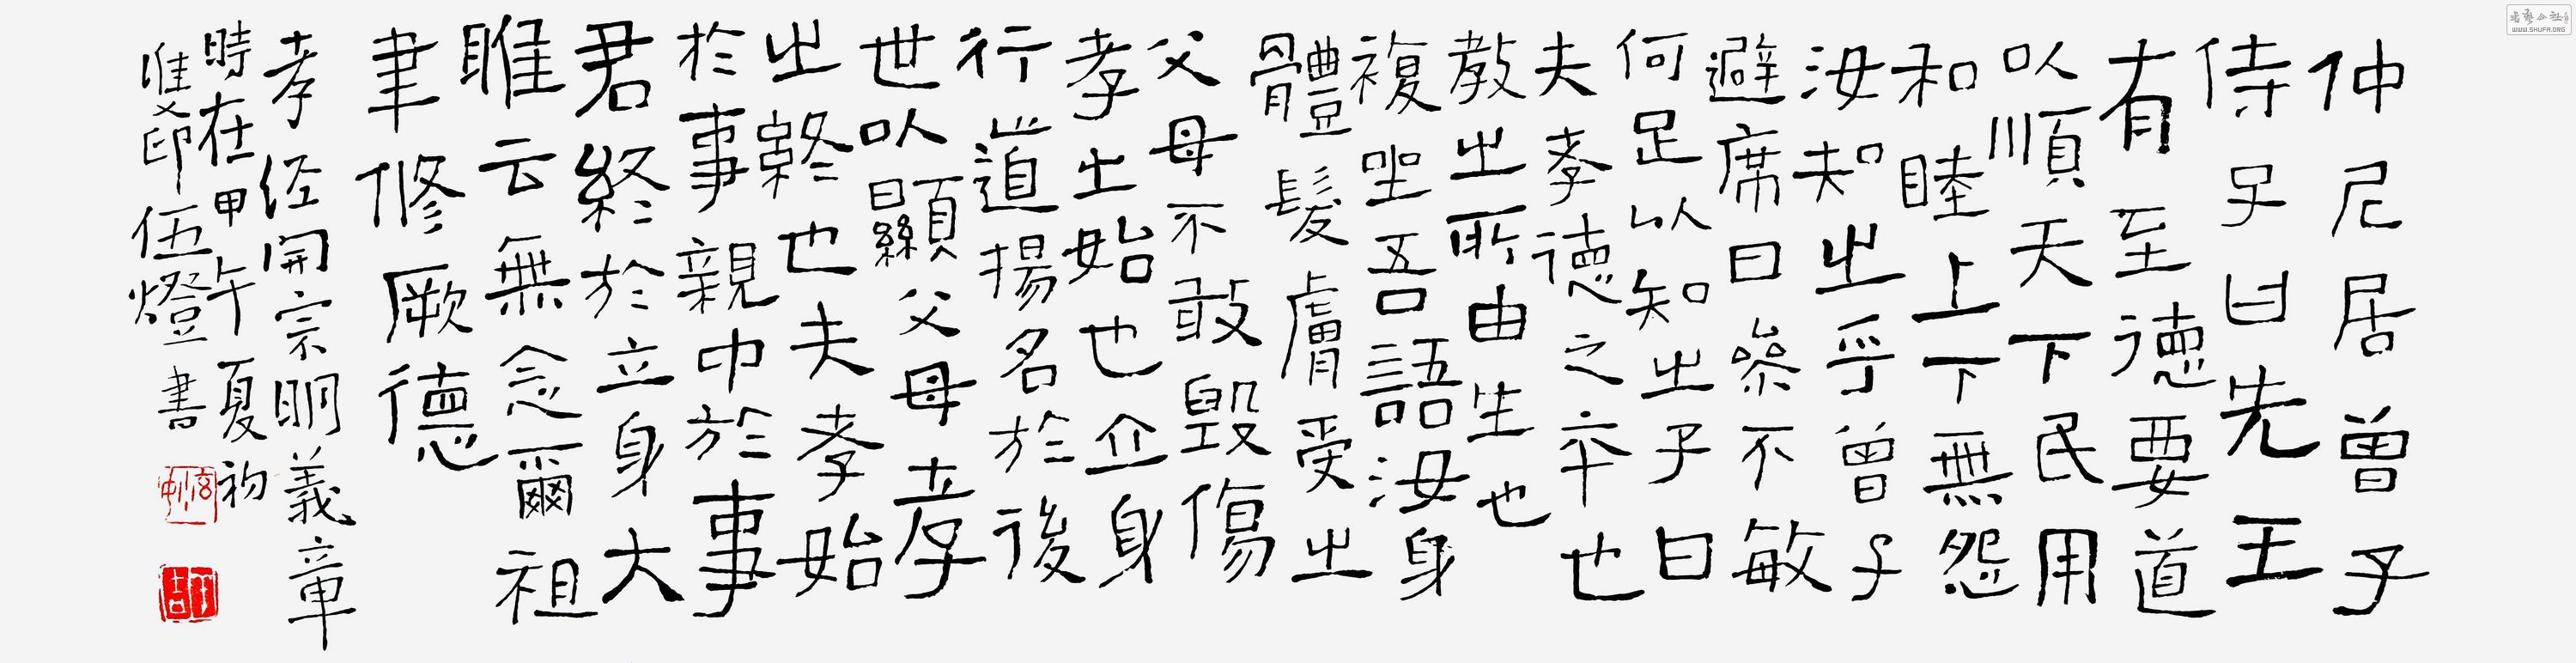 仲尼居曾子
侍子曰先王
有至德要道
以順天下民用
和睦上下無怨
汝知之乎曾子
避席曰參不敏
何足以知之子曰
夫孝德之本也
教之所由生也
複坐吾語汝身
體髮膚受之
父母不敢毀傷
孝之始也立身
行道揚名於後
世以顯父母孝
之終也夫孝始
於事親中於事
君終於立身大
雅云無念爾祖
聿修厥德
孝经開宗明義章
時在甲午夏初
伍燈書
WWW.SHUFA.ORG